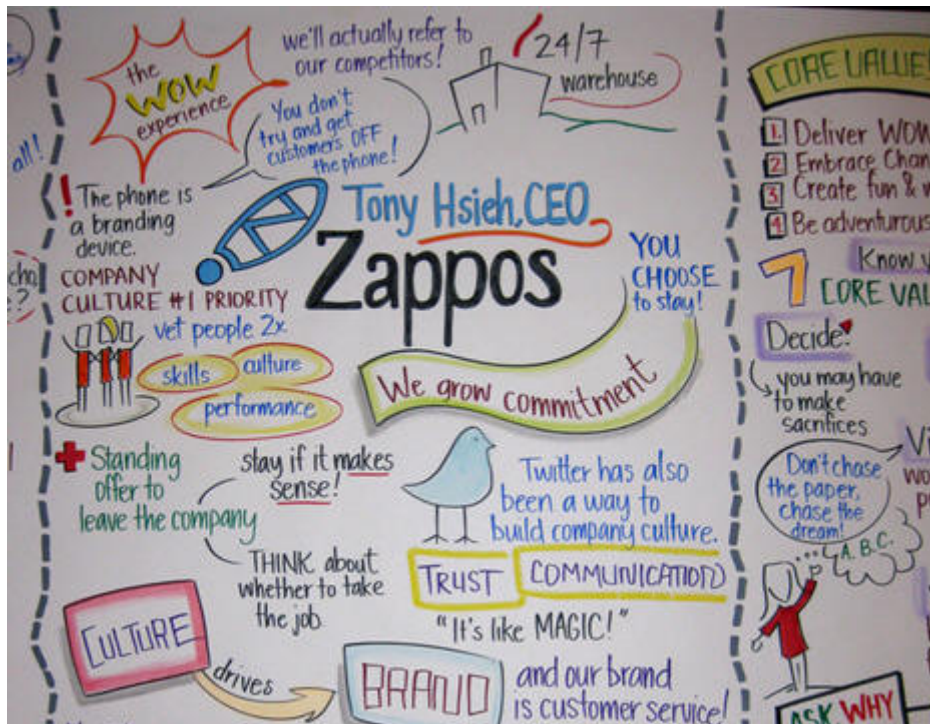 all!
the
WOW
experience
we'll actually refer to
our competitors!
You don't
try and get
customers OFF
the phone!
24/7
warehouse
! The phone is
a branding
device.
Tony Hsieh, CEO
Zappos
COMPANY
CULTURE #1 PRIORITY
vet people 2x
skills
culture
performance
YOU
CHOOSE
to stay!
We grow commitment
+ Standing
offer to
leave the company
stay if it makes
sense!
THINK about
whether to take
the job.
Twitter has also
been a way to
build company culture.
TRUST
COMMUNICATION
"It's like MAGIC!"
CULTURE
drives
BRAND
and our brand
is customer service!
CORE VALUES
1. Deliver WOW
2 Embrace Chan
3 Create fun &
4. Be adventurous
Know
7
CORE VAL
Decide!
you may have
to make
sacrifices
Don't chase
the paper,
chase the
dream!
A.B.C.
Vi
wo
p
ASK WHY